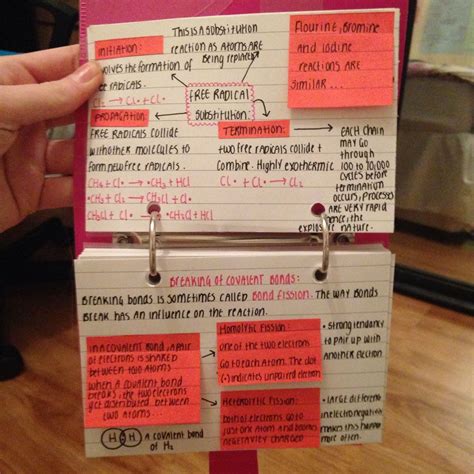 THIS IS A SUBSTITUTION
REACTION AS ATOMS ARE
BEING REPLACED
INITIATION:
INVOLVES THE FORMATION OF
FREE RADICALS.
Cl₂ → Cl• + Cl•
FREE RADICAL
SUBSTITUTION:
Flourine, Bromine
and Iodine
REACTIONS ARE
SIMILAR ...
PROPAGATION:
FREE RADICALS COLLIDE
WITH OTHER MOLECULES TO
FORM NEW FREE RADICALS.
CH₄ + Cl• → •CH₃ + HCl
•CH₃ + Cl₂ → CH₃Cl + Cl•
CH₃Cl + Cl• → •CH₂Cl + HCl
TERMINATION:
TWO FREE RADICALS COLLIDE +
COMBINE. HIGHLY EXOTHERMIC
Cl• + Cl• → Cl₂
EACH CHAIN
MAY GO
THROUGH
100 TO 10,000
CYCLES BEFORE
TERMINATION
OCCURS, PROCESSES
ARE VERY RAPID
HENCE, THE
EXPLOSIVE NATURE.
BREAKING OF COVALENT BONDS:
BREAKING BONDS IS SOMETIMES CALLED BOND FISSION. THE WAY BONDS
BREAK HAS AN INFLUENCE ON THE REACTION.
IN A COVALENT BOND, A PAIR
OF ELECTRONS IS SHARED
BETWEEN TWO ATOMS
WHEN A COVALENT BOND
BREAKS, THE TWO ELECTRONS
GET DISTRIBUTED BETWEEN
TWO ATOMS
HOMOLYTIC FISSION:
ONE OF THE TWO ELECTRONS
GO TO EACH ATOM. THE DOT
(•) INDICATES UNPAIRED ELECTRON
• STRONG TENDANCY
TO PAIR UP WITH
ANOTHER ELECTRON
HETEROLYTIC FISSION:
BOTH OF ELECTRONS GO TO
JUST ONE ATOM AND BECOMES
NEGATIVITY CHARGED
• LARGE DIFFERENT
IN ELECTRONEGATIVITY
MAKES THIS HAPPEN
MORE OFTEN.
H H A COVALENT BOND
OF H₂